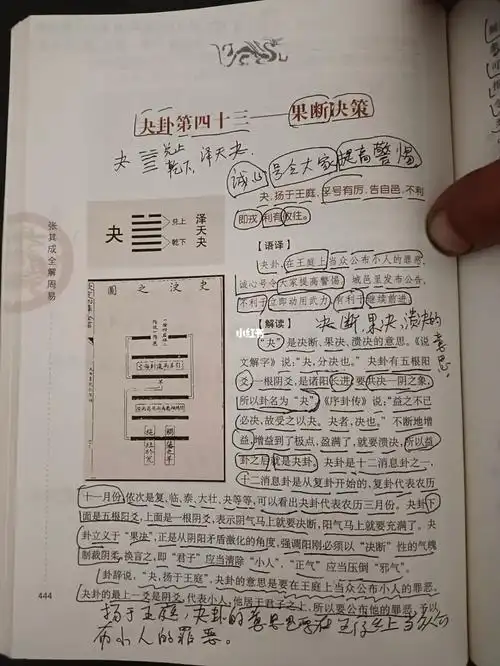 夬卦第四十三——果断决策
夬 兑上
乾下 泽天夬
诚心 号令大家提高警惕
夬,扬于王庭,孚号有厉,告自邑,不利
即戎,利有攸往。
夬
兑上
乾下
泽
天
夬
【语译】
夬卦,在王庭上当众公布小人的罪恶,
诚心号令大家提高警惕,城邑里发布公告,
不利于立即动用武力,有利于继续前进。
【解读】 决断,果决,溃决的意思。
“夬”是决断、果决、溃决的意思。《说
文解字》说:“夬,分决也。”夬卦有五根阳
爻一根阴爻,是诸阳长进,要共决一阴之象,
所以卦名为“夬”。《序卦传》说:“益之不已
必决,故受之以夬。夬者,决也。”不断地增
益,增益到了极点,盈满了,就要溃决,所以益
卦之后就是夬卦。夬卦是十二消息卦之一,
十二消息卦是从复卦开始的,复卦代表农历
十一月份,依次是复、临、泰、大壮、夬等等,可以看出夬卦代表农历三月份。夬卦下
面是五根阳爻,上面是一根阴爻,表示阴气马上就要决断,阳气马上就要充满了。夬
卦立义于“果决”,正是从阴阳矛盾激化的角度,强调阳刚必须以“决断”性的气魄
制裁阴柔,换言之,即“君子”应当清除“小人”,“正气”应当压倒“邪气”。
卦辞说,“夬,扬于王庭”,夬卦的意思是要在王庭上当众公布小人的罪恶。
夬卦的最上一爻是阴爻,代表小人,他居于君子之上,所以要公布他的罪恶,予以
扬于王庭,夬卦的意思是在王庭上当众公
布小人的罪恶。
张其成全解周易
444
小红书